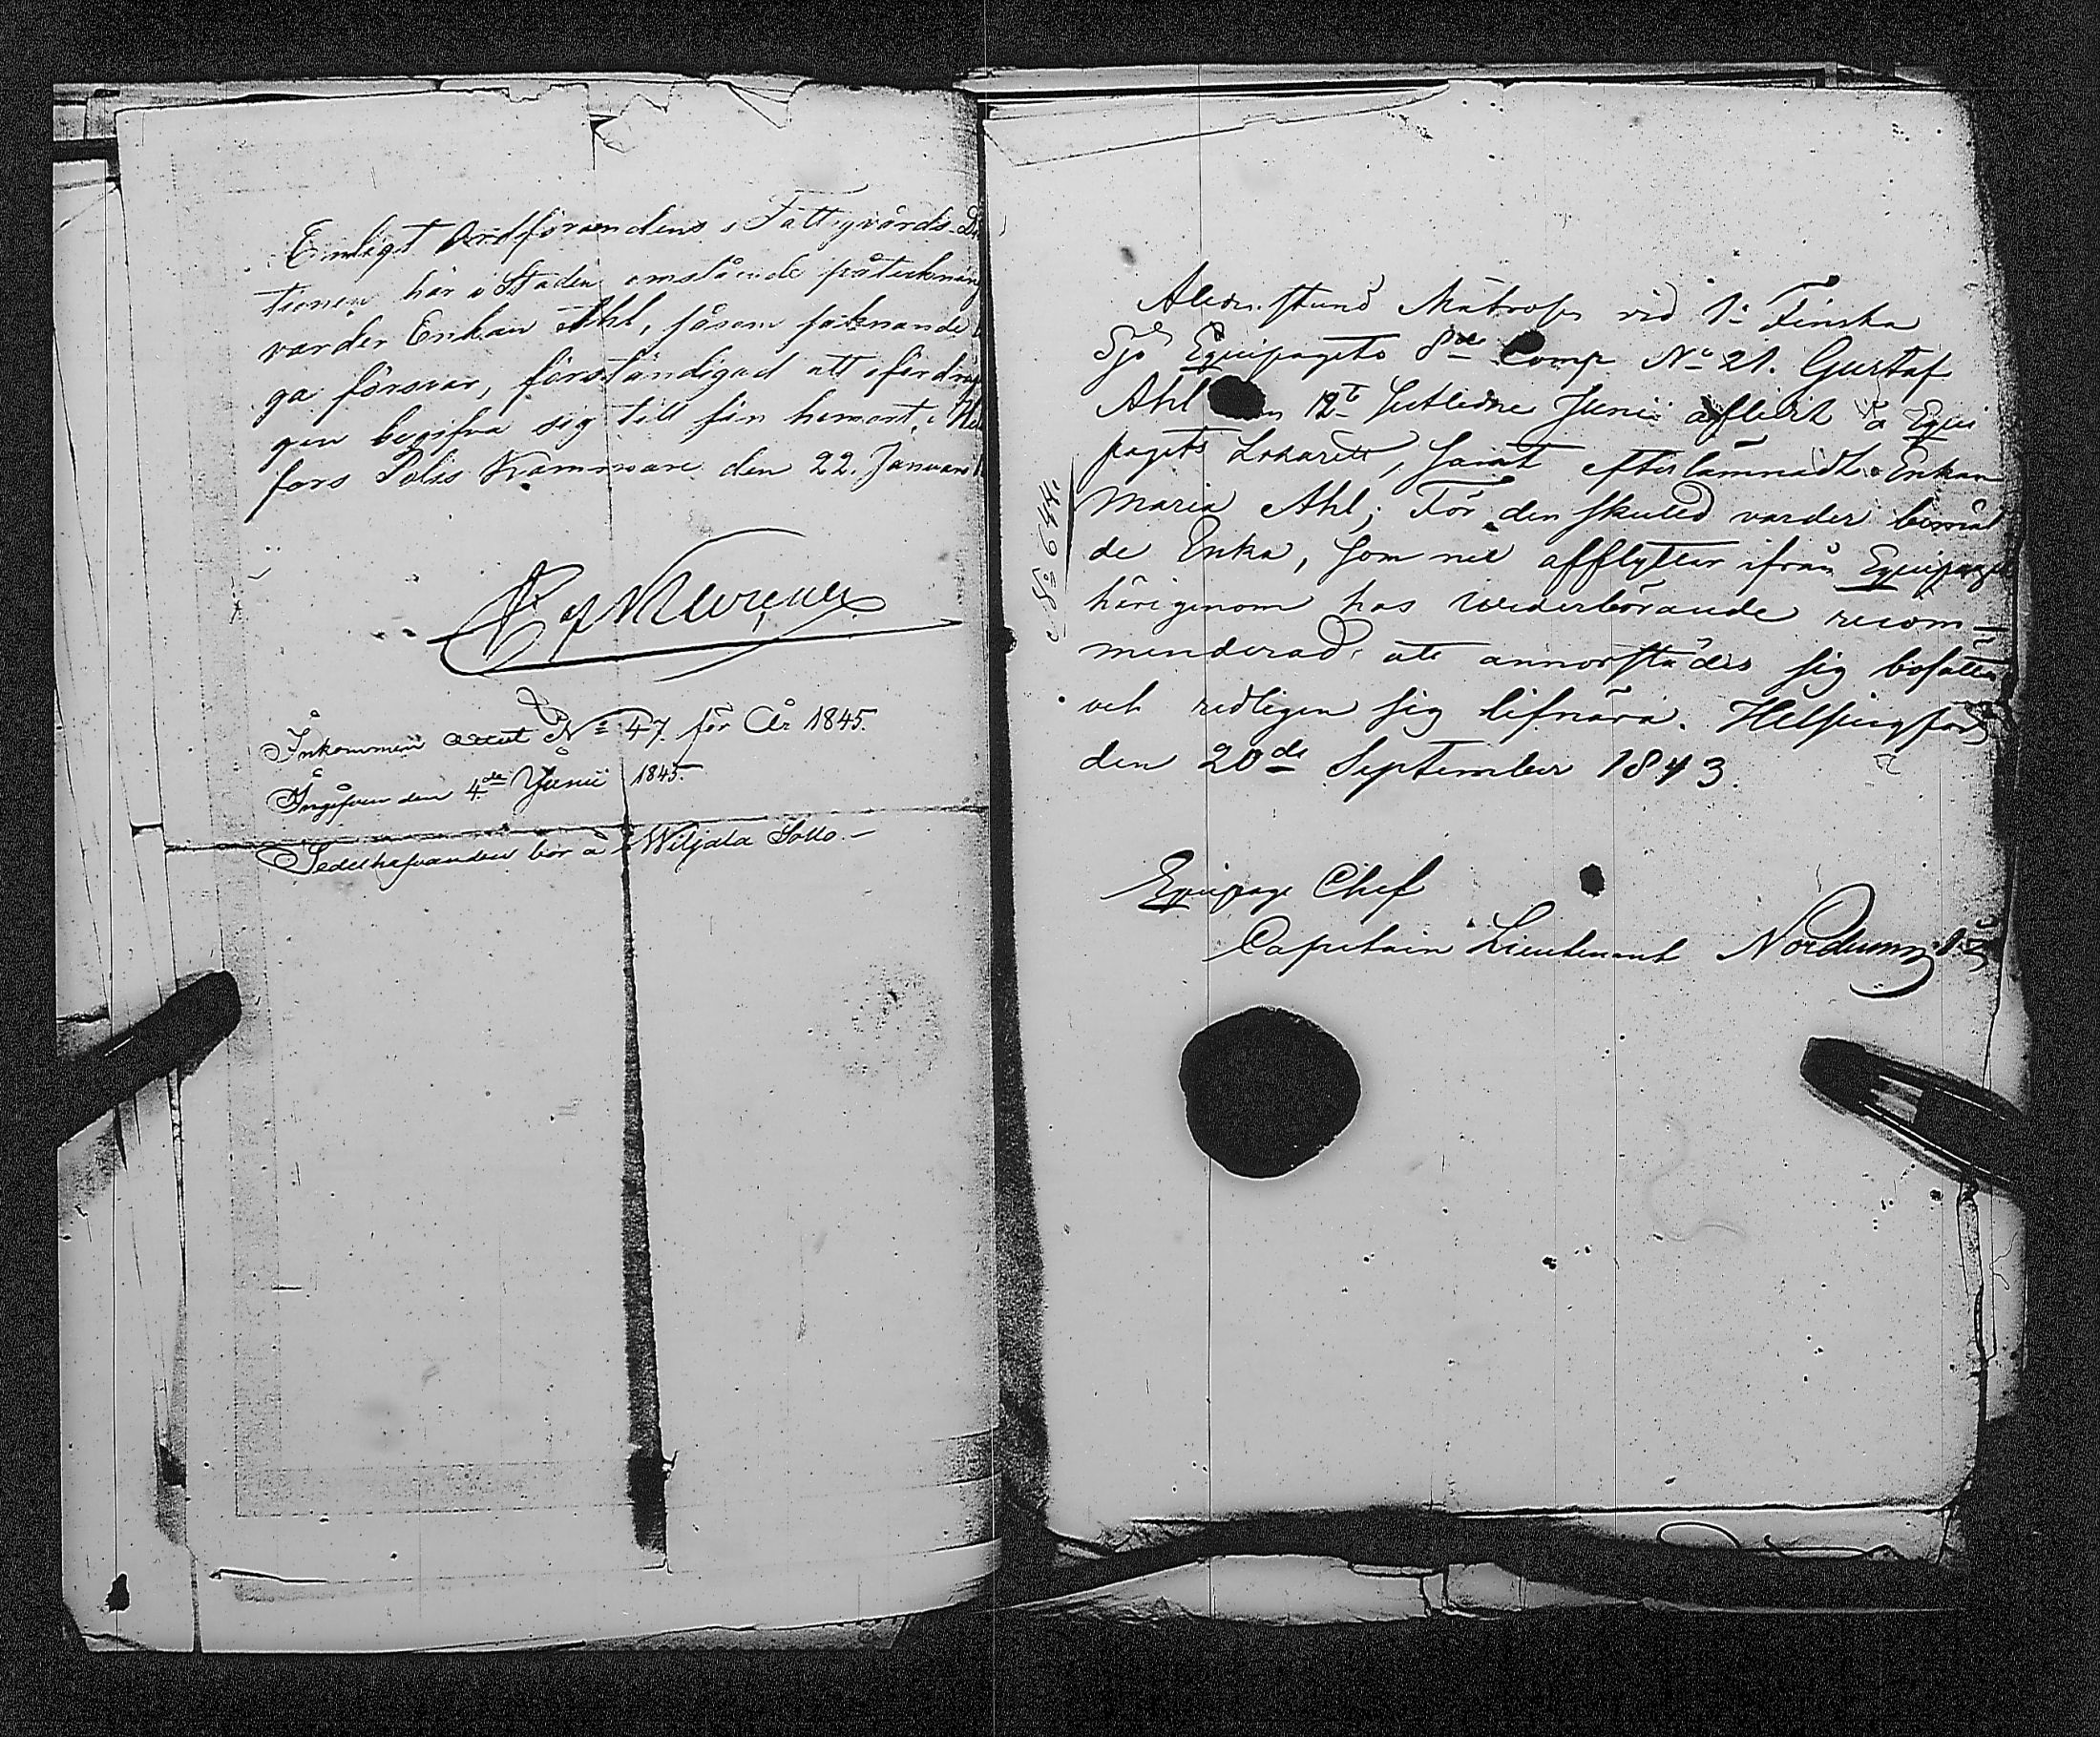 Enligt Ordförandens i Fattigvårds-Di
tionen här i Staden omstående påteckning
varder Enkan Ahl, såsom saknande
ga försvar, förständigad att ofördröj
gen begifva sig till sin hemort. Hel
fors Polis Kammare den 22. Januari
af
Inkommen attest No 47 för År 1845.
Ingifven den 4de Junii 1845.
Sedelhafvanden bor å Wiljala Sollo.
No 644.
Alldenstund Matrosen vid 1a Finska
Sjö Equipagets 8de Comp No 21. Gustaf
Ahl 12te sistledne Junii aflidit å Equi
pagets Lazarett, samt efterlämnadt Enkan
Maria Ahl; För den skuld varder bemäl
de Enka, som nu afflyttar ifrån Equipaget
härigenom hos wederbörande recom-
menderad att annorstädes sig bosätta
och redligen sig lifnära. Helsingfors
den 20de September 1843.
Equipage Chef
Capitain Lieutenant